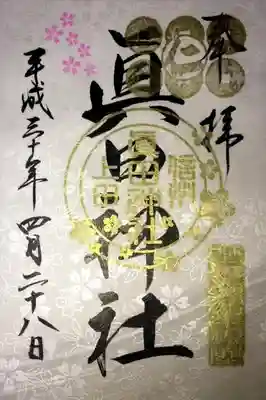 奉拝
眞田神社
平成三十年四月二十八日
信州
眞田神社
上田